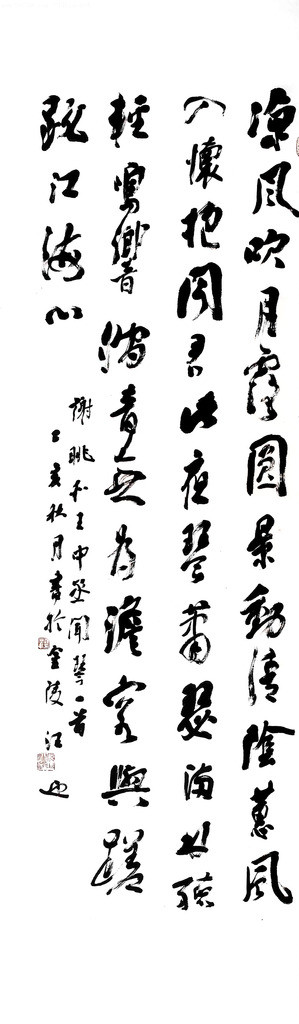 涼風吹月露圓景動清陰蕙風
入懷抱聞君此夜琴蕭瑟滿林聽
輕鳴響澗音無為澹容與蹉
跎江海心
謝眺和王中丞聞琴一首
丁亥秋月書於金陵江